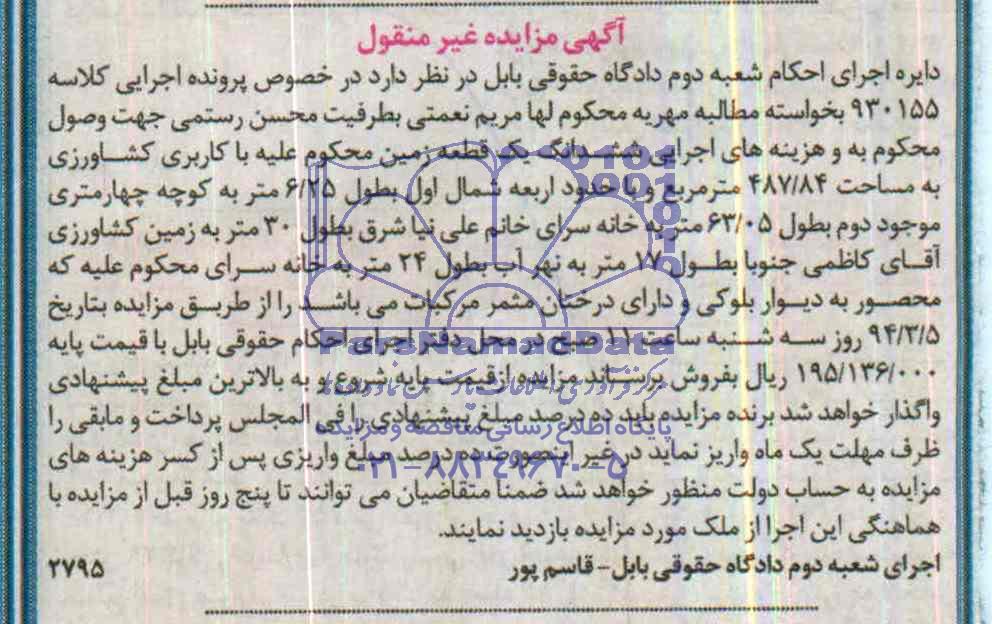 آگهی مزایده غیر منقول
دایره اجرای احکام شعبه دوم دادگاه حقوقی بابل در نظر دارد در خصوص پرونده اجرایی کلاسه
۹۳۰۱۵۵ بخواسته مطالبه مهریه محکوم لها مریم نعمتی بطرفیت محسن رستمی جهت وصول
محکوم به و هزینه های اجرایی ششدانگ یک قطعه زمین محکوم علیه با کاربری کشاورزی
به مساحت ۴۸۷/۸۴ مترمربع و با حدود اربعه شمال اول بطول ۶/۲۵ متر به کوچه چهارمتری
موجود دوم بطول ۶۳/۰۵ متر به خانه سرای خانم علی نیا شرق بطول ۳۰ متر به زمین کشاورزی
آقای کاظمی جنوبا بطول ۱۷ متر به نهر آب بطول ۲۴ متر به خانه سرای محکوم علیه که
محصور به دیوار بلوکی و دارای درختان مثمر مرکبات می باشد را از طریق مزایده بتاریخ
۹۴/۳/۵ روز سه شنبه ساعت ۱۱ صبح در محل دفتر اجرای احکام حقوقی بابل با قیمت پایه
۱۹۵/۱۳۶/۰۰۰ ریال بفروش برساند مزایده از قیمت پایه شروع و به بالاترین مبلغ پیشنهادی
واگذار خواهد شد برنده مزایده باید ده درصد مبلغ پیشنهادی را فی المجلس پرداخت و مابقی را
ظرف مهلت یک ماه واریز نماید در غیر اینصورت ده درصد مبلغ واریزی پس از کسر هزینه های
مزایده به حساب دولت منظور خواهد شد ضمنا متقاضیان می توانند تا پنج روز قبل از مزایده با
هماهنگی این اجرا از ملک مورد مزایده بازدید نمایند.
اجرای شعبه دوم دادگاه حقوقی بابل- قاسم پور
۲۷۹۵
ParsNamadData
پایگاه اطلاع رسانی مناقصه و مزایده
۰۲۱-۸۸۳۴۹۶۷۰-۵